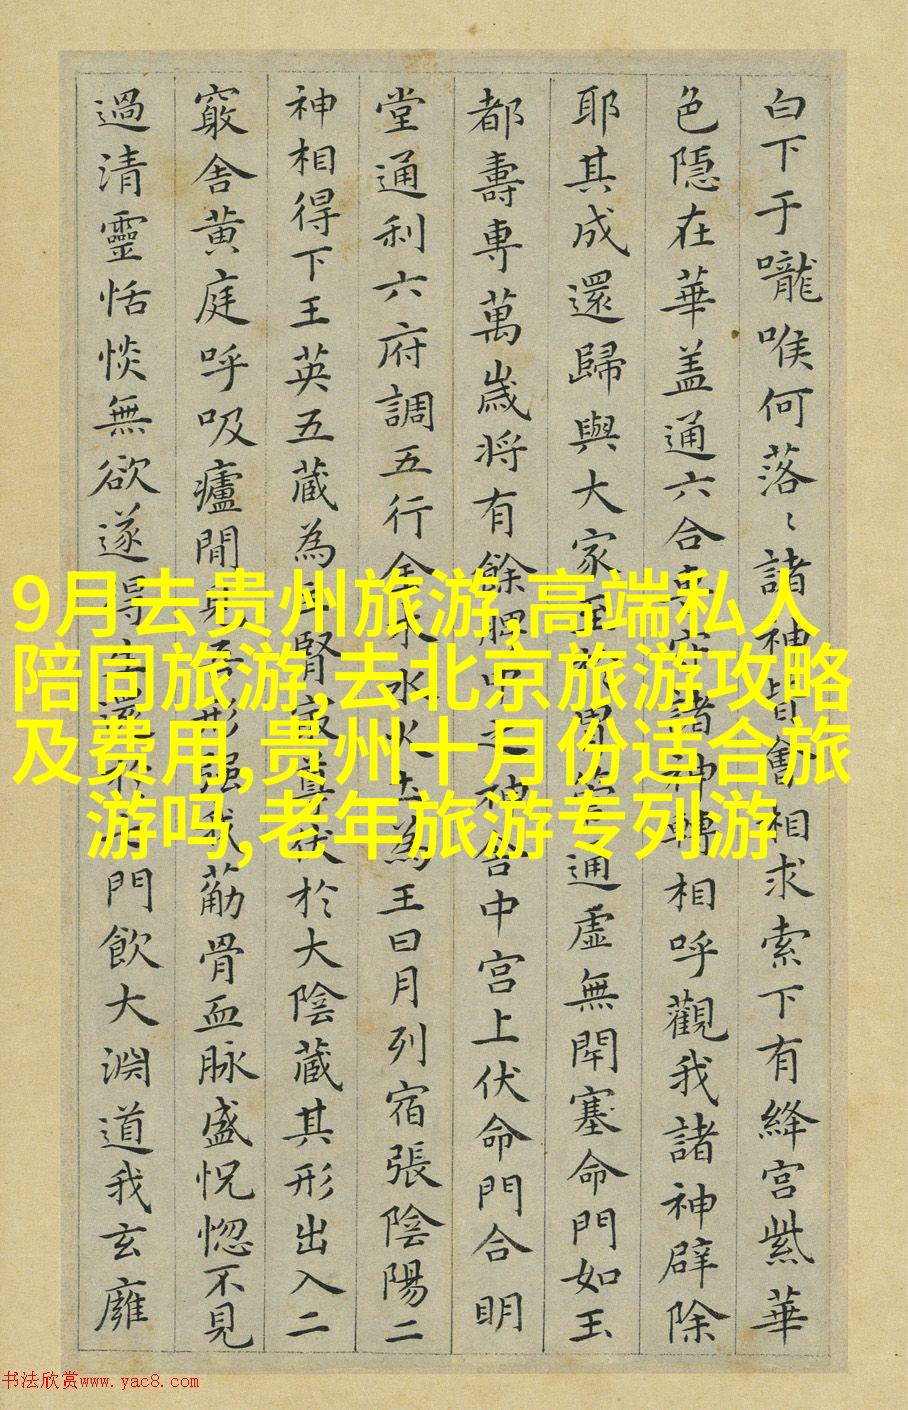 白下于嚨喉何落〻諸神皆會相求索下有絳宮紫華
色隱在華盖通六合專守諸神轉相呼觀我諸神辟除
耶其成還歸與大家至於胃管通虛無閇塞命門如玉
都壽専萬歲将有餘脾中之神舍中宫上伏命門合明
堂通利六府調五行金木水火土為王日月列宿張陰陽二
神相得下王英五蔵為主腎最尊伏於大陰蔵其形出入二
竅舍黄庭呼吸廬間見吾形强我筋骨血脉盛怳惚不見
過清靈恬惔無欲遂得生還於七門飲大淵道我玄廱
9月去贵州旅游,高端私人
陪同旅游,去北京旅游攻略
及费用,贵州十月份适合旅
游吗,老年旅游专列游
书法欣赏www.yac8.com